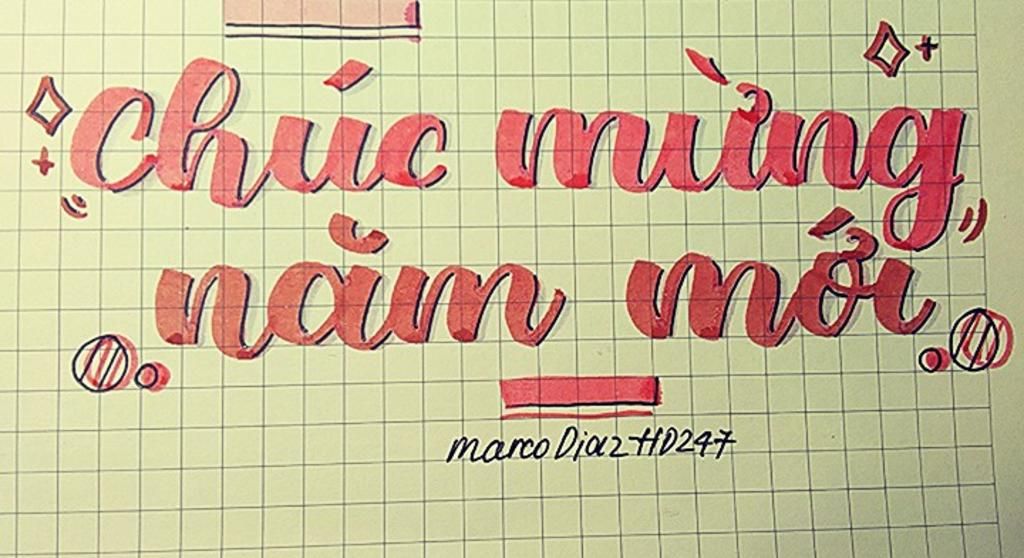 chúc mừng
năm mới
marcoDiazHD247